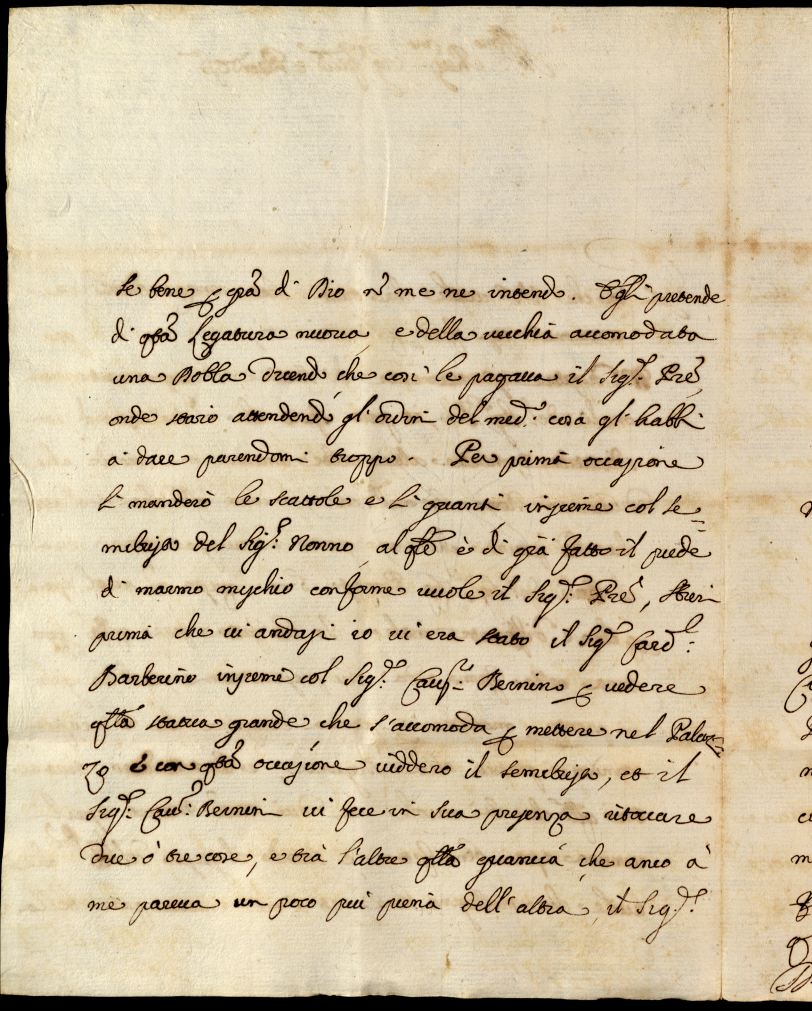 se bene p gra di Dio nō me ne intendo. Egli pretende
di qta Legatura nuova e della vecchia accomodata
una Dobla dicendo che così le pagava il Sigr. Pre,
onde starò attendendo gl'ordini del med.o cosa gl'habbi
à dare parendomi troppo. Per prima occasione
li manderò le scattole e li guanti insieme col se=
mebusto del Sigr: Nonno al qle è di già fatto il piede
di marmo mischio conforme vuole il Sigr: Pre, Hieri
prima che vi andassi io vi era stato il Sigr Card.l:
Barberino insieme col Sigr: Cavr: Bernino p vedere
qlla statua grande che s'accomoda p mettere nel Palaz=
zo e con qta occasione viddero il semebusto, et il
Sigr: Cavr: Bernini vi fece in sua presenza ritoccare
due ò tre cose, e trà l'altre qlla guancia che anco à
me pareva un poco più piena dell'altra, il Sigr: